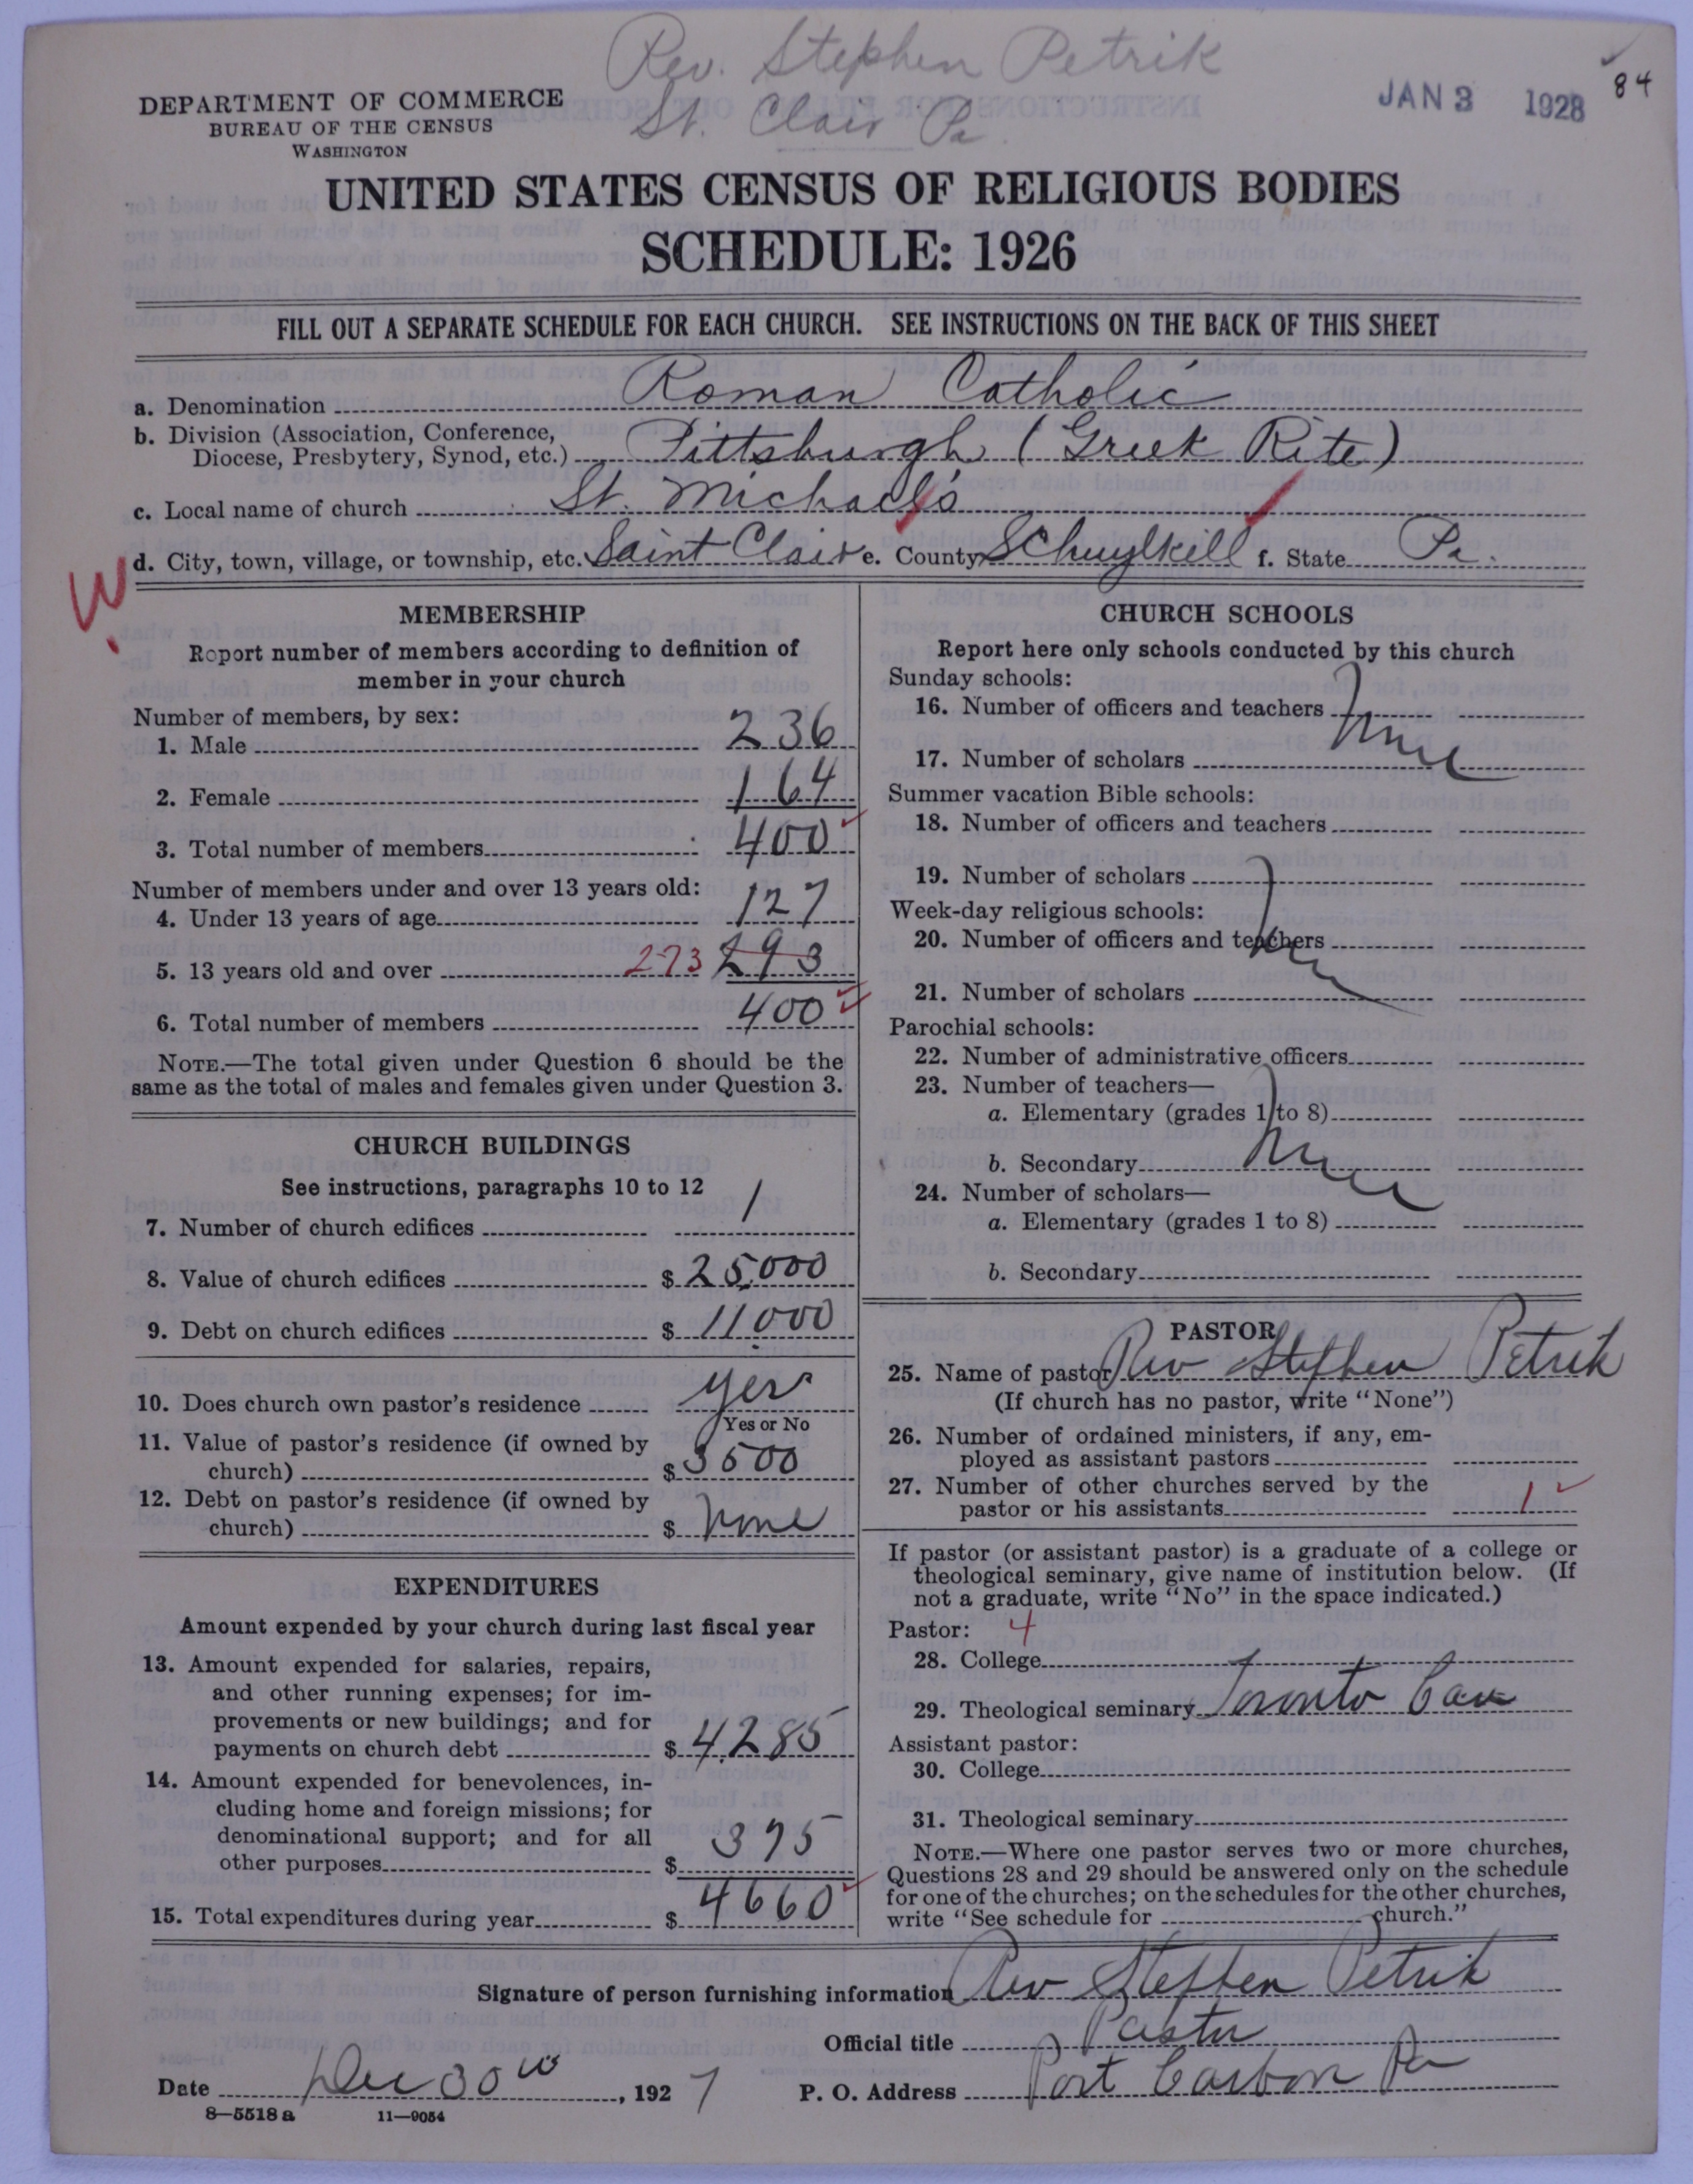 Rev. Stephen Petrik
St. Clair Pa.
JAN 3 1928
84
DEPARTMENT OF COMMERCE
BUREAU OF THE CENSUS
WASHINGTON
UNITED STATES CENSUS OF RELIGIOUS BODIES
SCHEDULE: 1926
FILL OUT A SEPARATE SCHEDULE FOR EACH CHURCH. SEE INSTRUCTIONS ON THE BACK OF THIS SHEET
a. Denomination Roman Catholic
b. Division (Association, Conference,
Diocese, Presbytery, Synod, etc.) Pittsburgh (Greek Rite)
c. Local name of church St. Michael's
W d. City, town, village, or township, etc. Saint Clair e. County Schuylkill f. State Pa.
MEMBERSHIP
Report number of members according to definition of
member in your church
Number of members, by sex:
1. Male 236
2. Female 164
3. Total number of members 400
Number of members under and over 13 years old:
4. Under 13 years of age 127
5. 13 years old and over 273 293
6. Total number of members 400
NOTE.—The total given under Question 6 should be the
same as the total of males and females given under Question 3.
CHURCH BUILDINGS
See instructions, paragraphs 10 to 12
7. Number of church edifices 1
8. Value of church edifices $ 25,000
9. Debt on church edifices $ 11000
10. Does church own pastor's residence yes
Yes or No
11. Value of pastor's residence (if owned by
church) $ 3500
12. Debt on pastor's residence (if owned by
church) $ None
EXPENDITURES
Amount expended by your church during last fiscal year
13. Amount expended for salaries, repairs,
and other running expenses; for im-
provements or new buildings; and for
payments on church debt $ 4,285
14. Amount expended for benevolences, in-
cluding home and foreign missions; for
denominational support; and for all
other purposes $ 375
15. Total expenditures during year $ 4660
CHURCH SCHOOLS
Report here only schools conducted by this church
Sunday schools:
16. Number of officers and teachers
None
17. Number of scholars
Summer vacation Bible schools:
18. Number of officers and teachers
19. Number of scholars
Week-day religious schools:
20. Number of officers and teachers
21. Number of scholars
Parochial schools:
22. Number of administrative officers
23. Number of teachers—
a. Elementary (grades 1 to 8)
b. Secondary None
24. Number of scholars—
a. Elementary (grades 1 to 8)
b. Secondary
PASTOR
25. Name of pastor Rev Stephen Petrik
(If church has no pastor, write "None")
26. Number of ordained ministers, if any, em-
ployed as assistant pastors
27. Number of other churches served by the
pastor or his assistants 1
If pastor (or assistant pastor) is a graduate of a college or
theological seminary, give name of institution below. (If
not a graduate, write "No" in the space indicated.)
Pastor: 4
28. College
29. Theological seminary Toronto Can
Assistant pastor:
30. College
31. Theological seminary
NOTE.—Where one pastor serves two or more churches,
Questions 28 and 29 should be answered only on the schedule
for one of the churches; on the schedules for the other churches,
write "See schedule for church."
Signature of person furnishing information Rev Stephen Petrik
Official title Pastor
Date Dec 30 , 1927 P. O. Address Port Carbon Pa
8—5518 a 11—9054